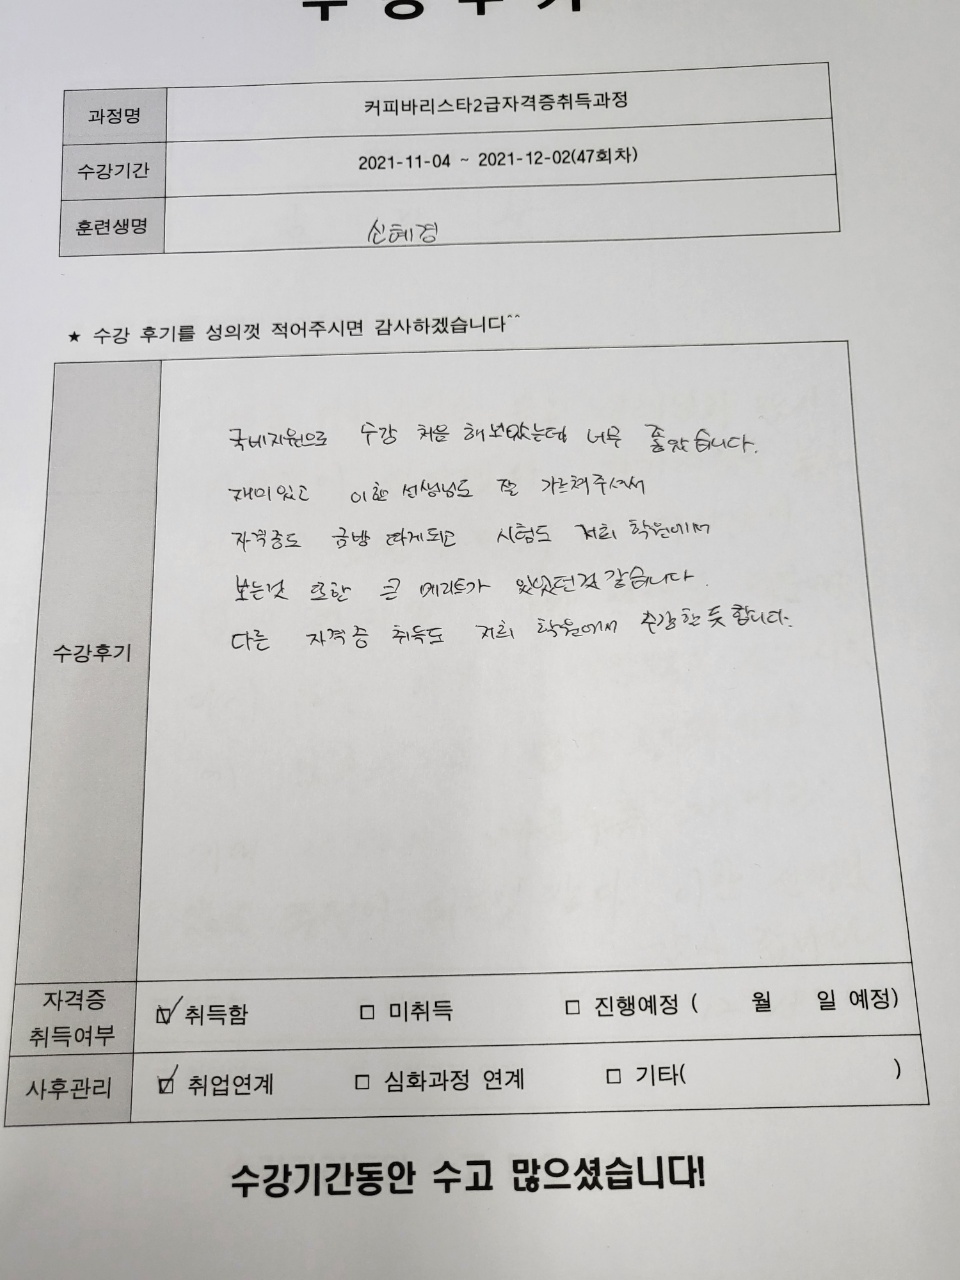 수강후기
과정명 커피바리스타2급자격증취득과정
수강기간 2021-11-04 ~ 2021-12-02(47회차)
훈련생명 신혜경
★ 수강 후기를 성의껏 적어주시면 감사하겠습니다^^
국비지원으로 수강 처음 해보았는데 너무 좋았습니다.
재미있고 선생님도 잘 가르쳐주셔서
자격증도 금방 따게되고 시험도 저희 학원에서
보는것 또한 큰 메리트가 있었던것 같습니다.
다른 자격증 취득도 저희 학원에서 수강할 듯 합니다.
수강후기
자격증 취득여부 ☑ 취득함 □ 미취득 □ 진행예정 ( 월 일 예정)
사후관리 ☑ 취업연계 □ 심화과정 연계 □ 기타( )
수강기간동안 수고 많으셨습니다!